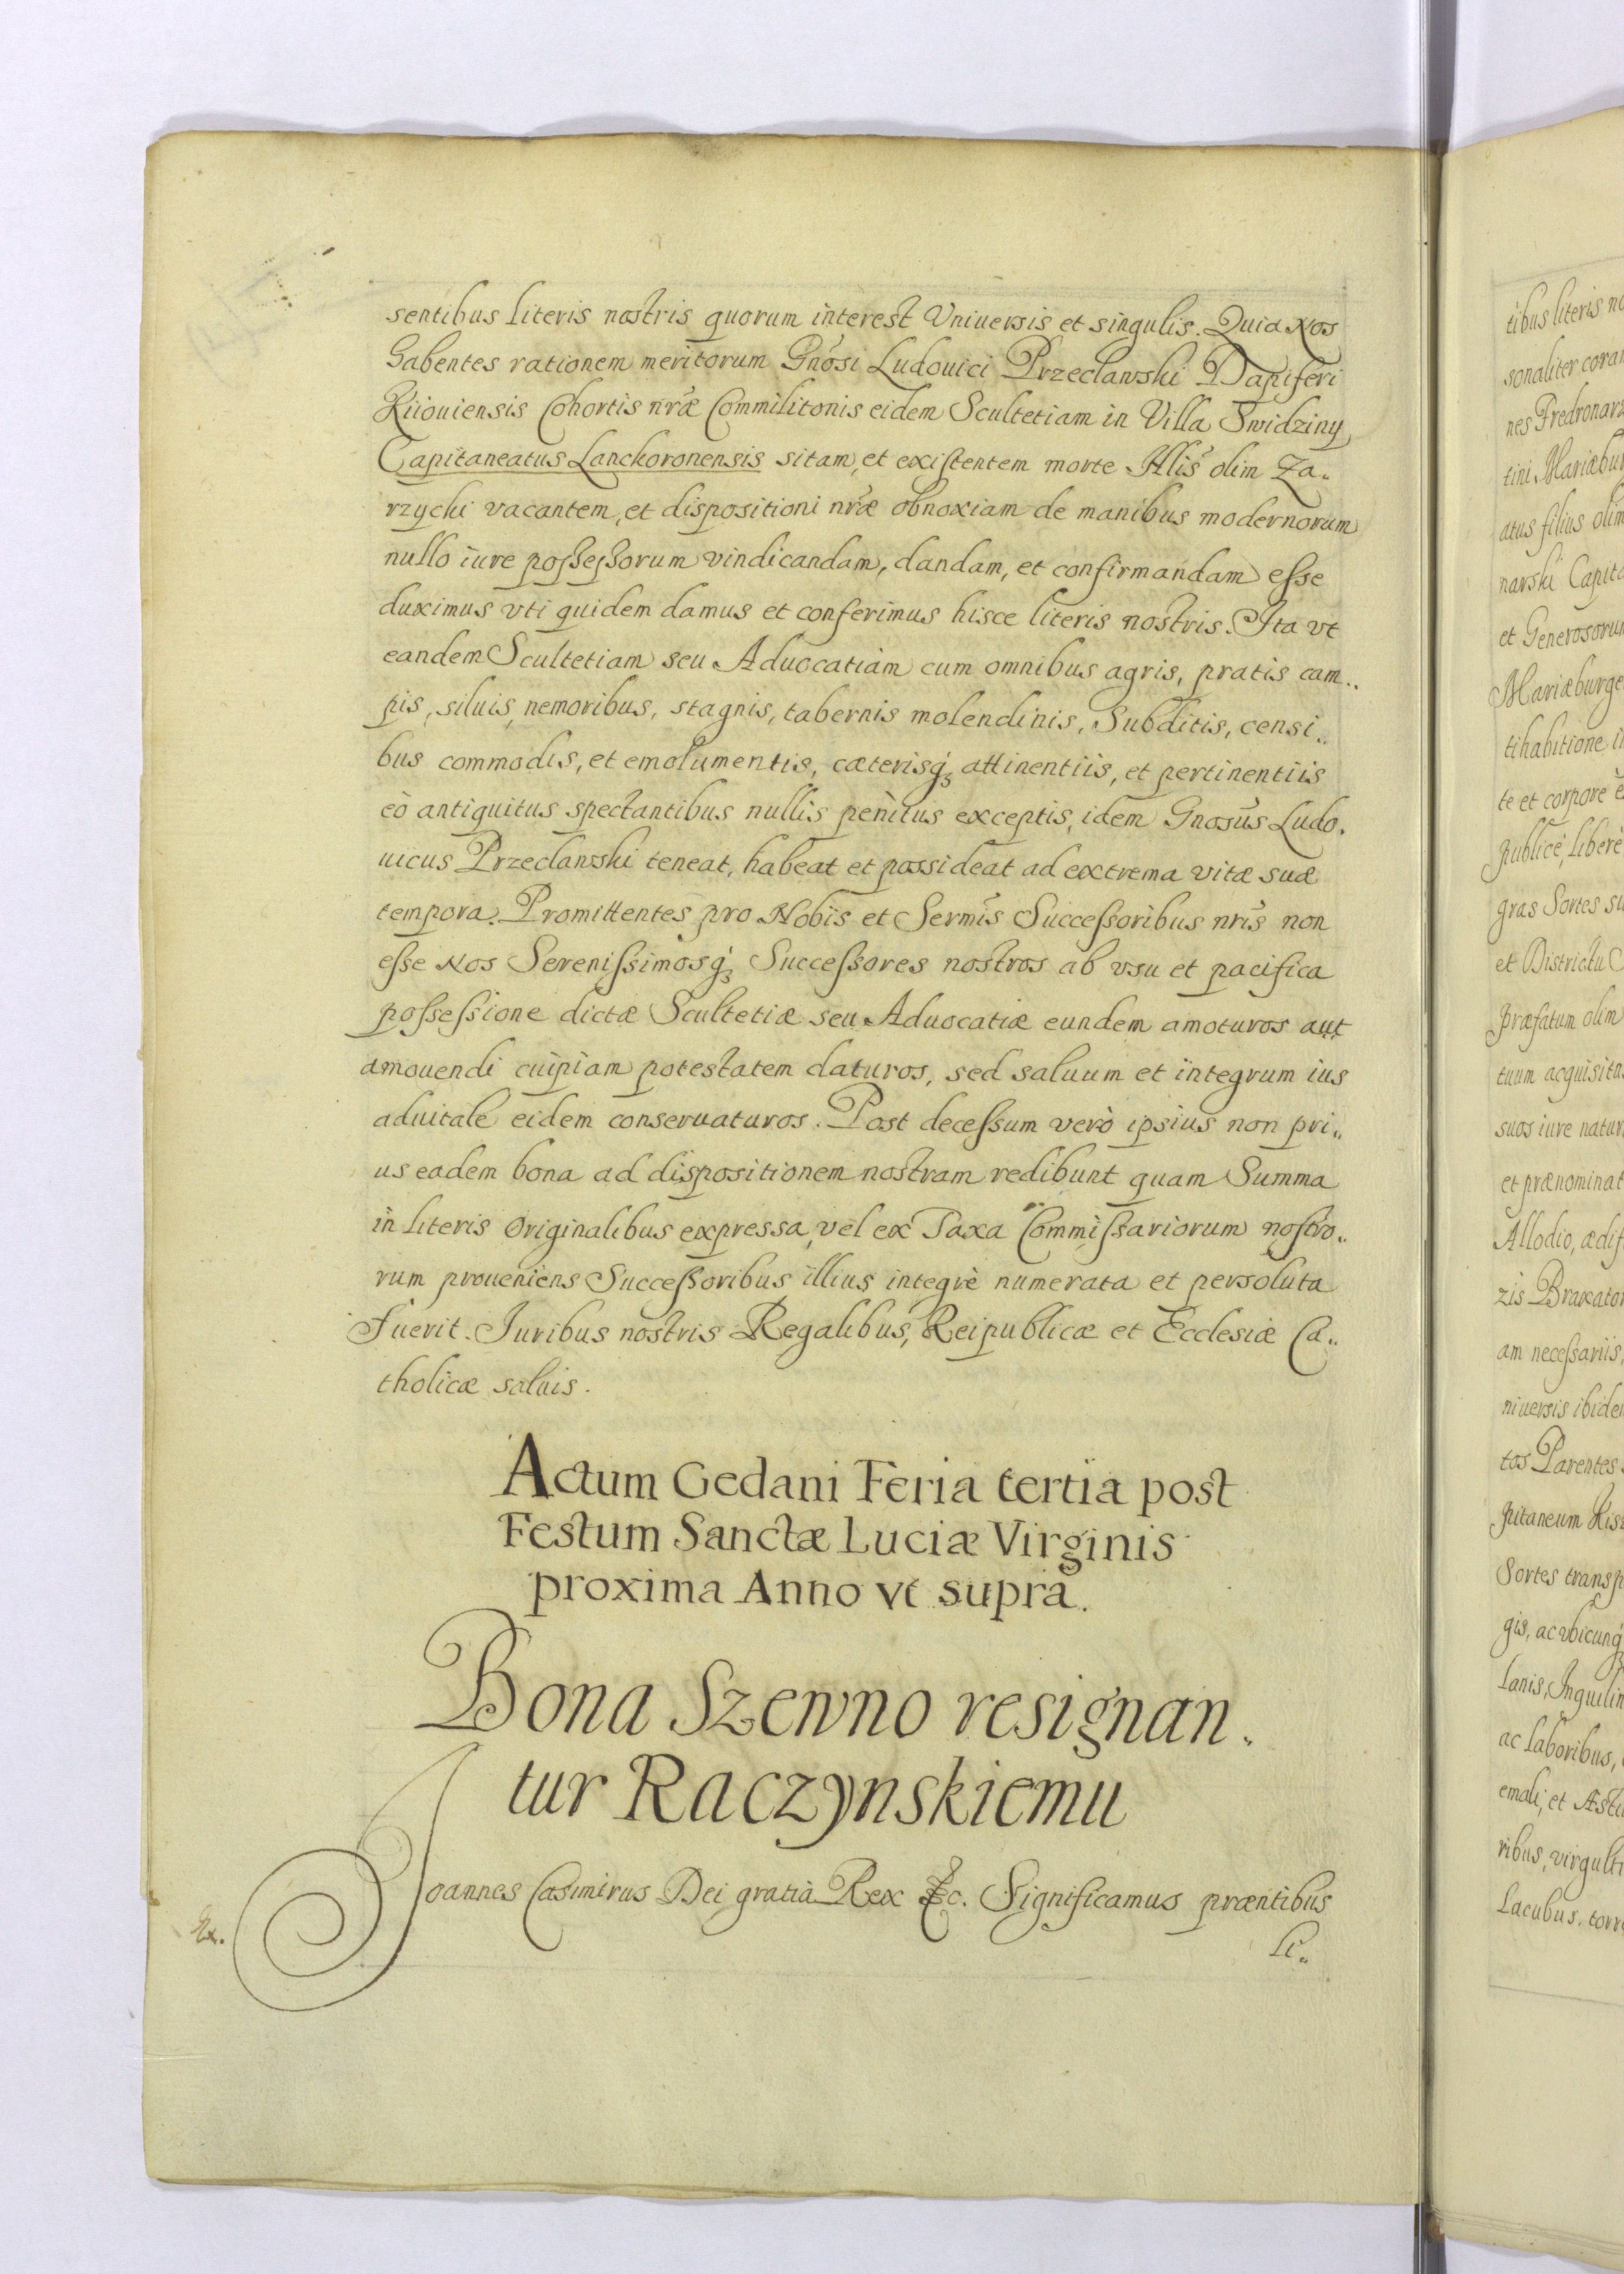 sentibus literis nostris quorum interest Vniuersis et singulis. Quia Nos
Habentes rationem meritorum Gnosi Ludouici Przeclawski Dapiferi
Kiiouiensis Cohortis nræ Commilitonis eidem Scultetiam in Villa Swidziny
Capitaneatus Lanckoronensis sitam, et existentem morte Hlis olim Za„
rzycki vacantem, et dispositioni nræ obnoxiam de manibus modernorum
nullo iure possessorum vindicandam, dandam, et confirmandam esse
duximus vti quidem damus et conferimus hisce literis nostris. Ita vt
eandem Scultetiam seu Aduocatiam cum omnibus agris, pratis cam„
pis, siluis, nemoribus, stagnis, tabernis molendinis, Subditis, censi„
bus commodis, et emolumentis, cæterisq́; attinentiis, et pertinentiis
eò antiquitus spectantibus nullis penitus exceptis, idem Gnosus Ludo„
uicus Przeclawski teneat, habeat et possideat ad extrema vitæ suæ
tempora. Promittentes pro Nobis et Sermis Successoribus nris non
esse Nos Serenissimosq́; Successores nostros ab vsu et pacifica
possessione dictæ Scultetiæ seu Aduocatiæ eundem amoturos aut
amouendi cuipiam potestatem daturos, sed saluum et integrum ius
aduitale eidem conseruaturos. Post decessum verò ipsius non pri„
us eadem bona ad dispositionem nostram redibunt quam Summa
in literis Originalibus expressa, vel ex Taxa Commissariorum nostro„
rum proueniens Successoribus illius integrè numerata et persoluta
Fuerit. Iuribus nostris Regalibus, Reipublicæ et Ecclesiæ Ca„
tholicæ saluis.
Actum Gedani Feria tertia post
Festum Sanctæ Luciæ Virginis
proxima Anno vt suprà.
Bona Szewno resignan„
tur Raczynskiemu
Joannes Casimirus Dei gratià Rex &c. Significamus præntibus
li„
tibus literis no
sonaliter coram
nes Fredronarz
tini Mariæbur
atus filius olim
narski Capita
et Generosorum
Mariæburge
tihabitione i
te et corpore
publicè, liberè
gras Sortes su
et Districtu C
præfatum olim
tuum acquisita
suos iure natur
et prænominat
Allodio, ædif
zis Braxator
am necessariis,
niuersis ibide
tos Parentes
pitaneum
Sortes transp
gis, ac vbicunq́
lanis, Inquilin
ac laboribus,
emali, et Æsti
ribus, virgulti
Lacubus, torr